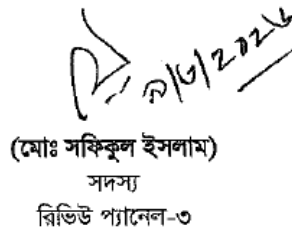 ৯/৩/২০২৬
(মোঃ সফিকুল ইসলাম)
সদস্য
রিভিউ প্যানেল-৩